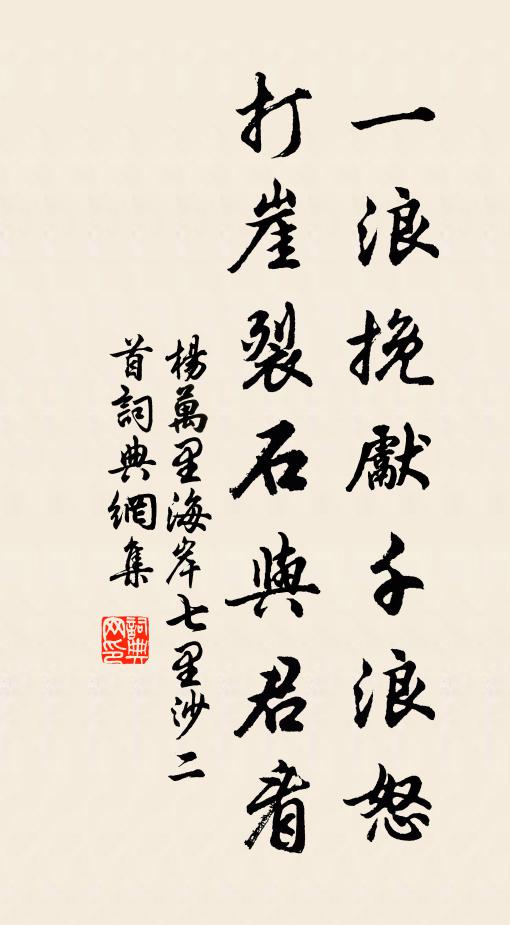 一浪挽獻千浪怒
打崖裂石與君看
楊萬里海岸七里沙二
首詞典網集
詞典網印